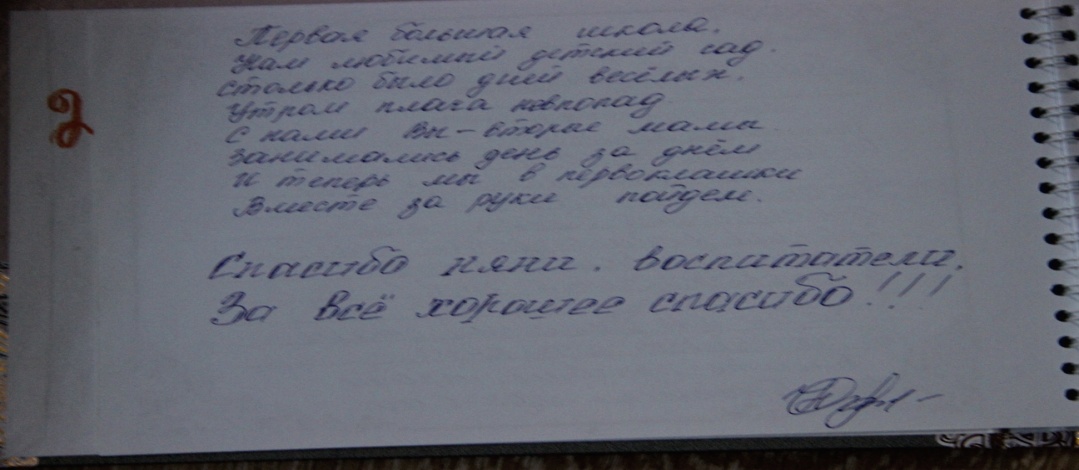 2
Первая большая школа.
Нам любимый детский сад.
Столько было дней весёлых.
Утром плача невпопад
С нами Вы - вторые мамы
Занимались день за днём
И теперь мы в первоклашки
Вместе за руки пойдем.
Спасибо няни, воспитатели,
За всё хорошее спасибо!!!